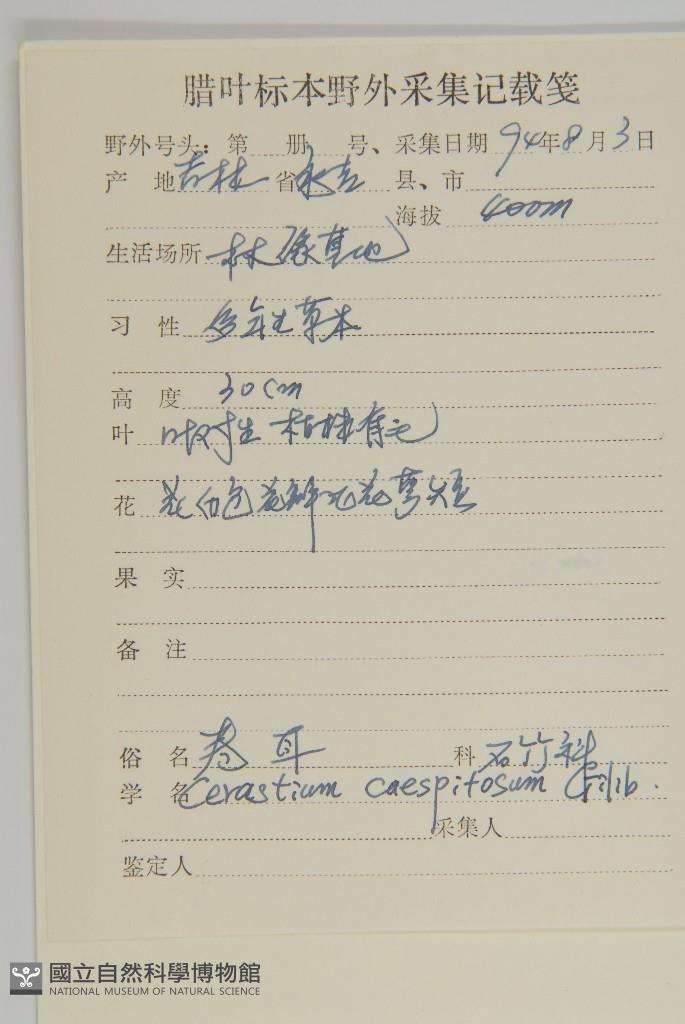 腊叶标本野外采集记载笺
野外号头：第 册 号、采集日期 94年8月3日
产 地 吉林 省 永吉 县、市
海拔 400m
生活场所 林缘草地
习 性 多年生草本
高 度 30cm
叶 叶对生 植株有毛
花 花白色花瓣比花萼短
果 实
备 注
俗 名 卷耳 科 石竹科
学 名 Cerastium caespitosum Gilib.
采集人
鉴定人
國立自然科學博物館
NATIONAL MUSEUM OF NATURAL SCIENCE